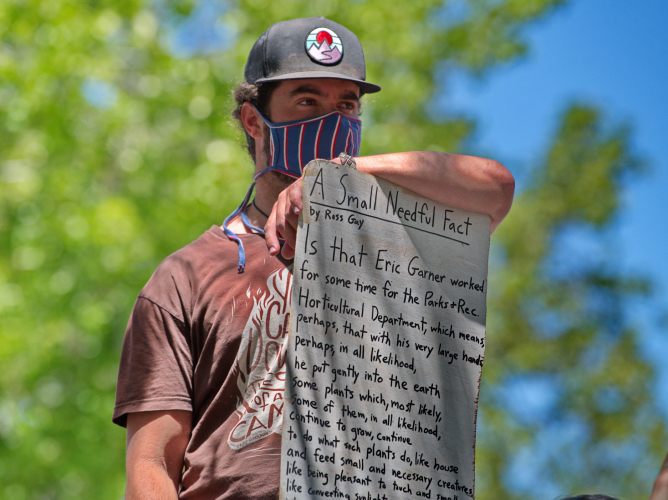 A Small Needful Fact
by Ross Gay
Is that Eric Garner worked
for some time for the Parks + Rec.
Horticultural Department, which means,
perhaps, that with his very large hands,
perhaps, in all likelihood,
he put gently into the earth
some plants which, most likely,
some of them, in all likelihood,
continue to grow, continue
to do what such plants do, like house
and feed small and necessary creatures,
like being pleasant to touch and smell,
like converting sunlight